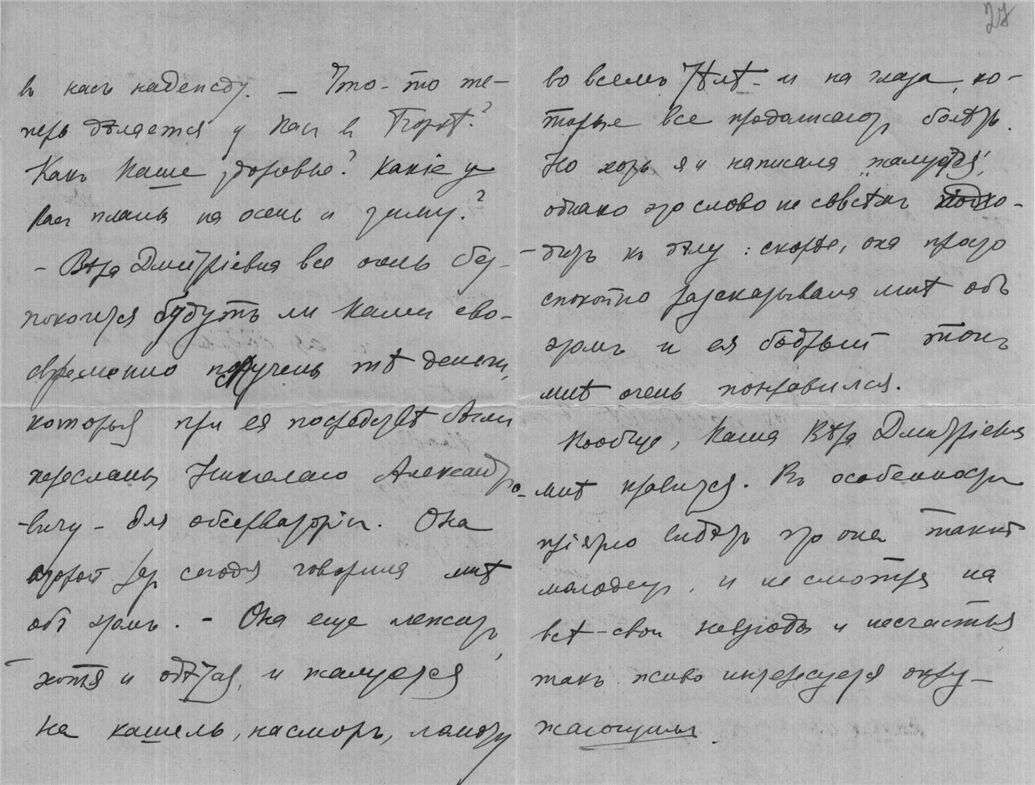 въ насъ надежду. – Что-то те-
перь дѣлается у Васъ въ Борѣ?
Какъ Ваше здоровье? Какіе у
Васъ планы на осень и зиму?
– Вѣра Дмитріевна все очень без-
покоится будутъ ли Вами сво-
евременно получены тѣ деньги,
которыя при ея посредствѣ были
пересланы Николаю Александро-
вичу – для обсерваторіи. Она
второй разъ сегодня говорила мнѣ
объ этомъ. – Она еще лежитъ,
хотя и одѣтая, и жалуется
на кашель, насморкъ, ломоту
27
во всемъ тѣлѣ и на глаза, ко-
торые все продолжаютъ болѣть.
Но хоть я и написала „жалуется",
однако это слово не совсѣмъ подхо-
дитъ къ дѣлу: скорѣе, она просто
спокойно разсказывала мнѣ объ
этомъ и ея бодрый тонъ
мнѣ очень понравился.
Вообще, Ваша Вѣра Дмитріевна
мнѣ нравится. Въ особенности
пріятно видѣть что она такой
молодецъ, и не смотря на
всѣ свои невзгоды и несчастья
такъ живо интересуется окру-
жающимъ.